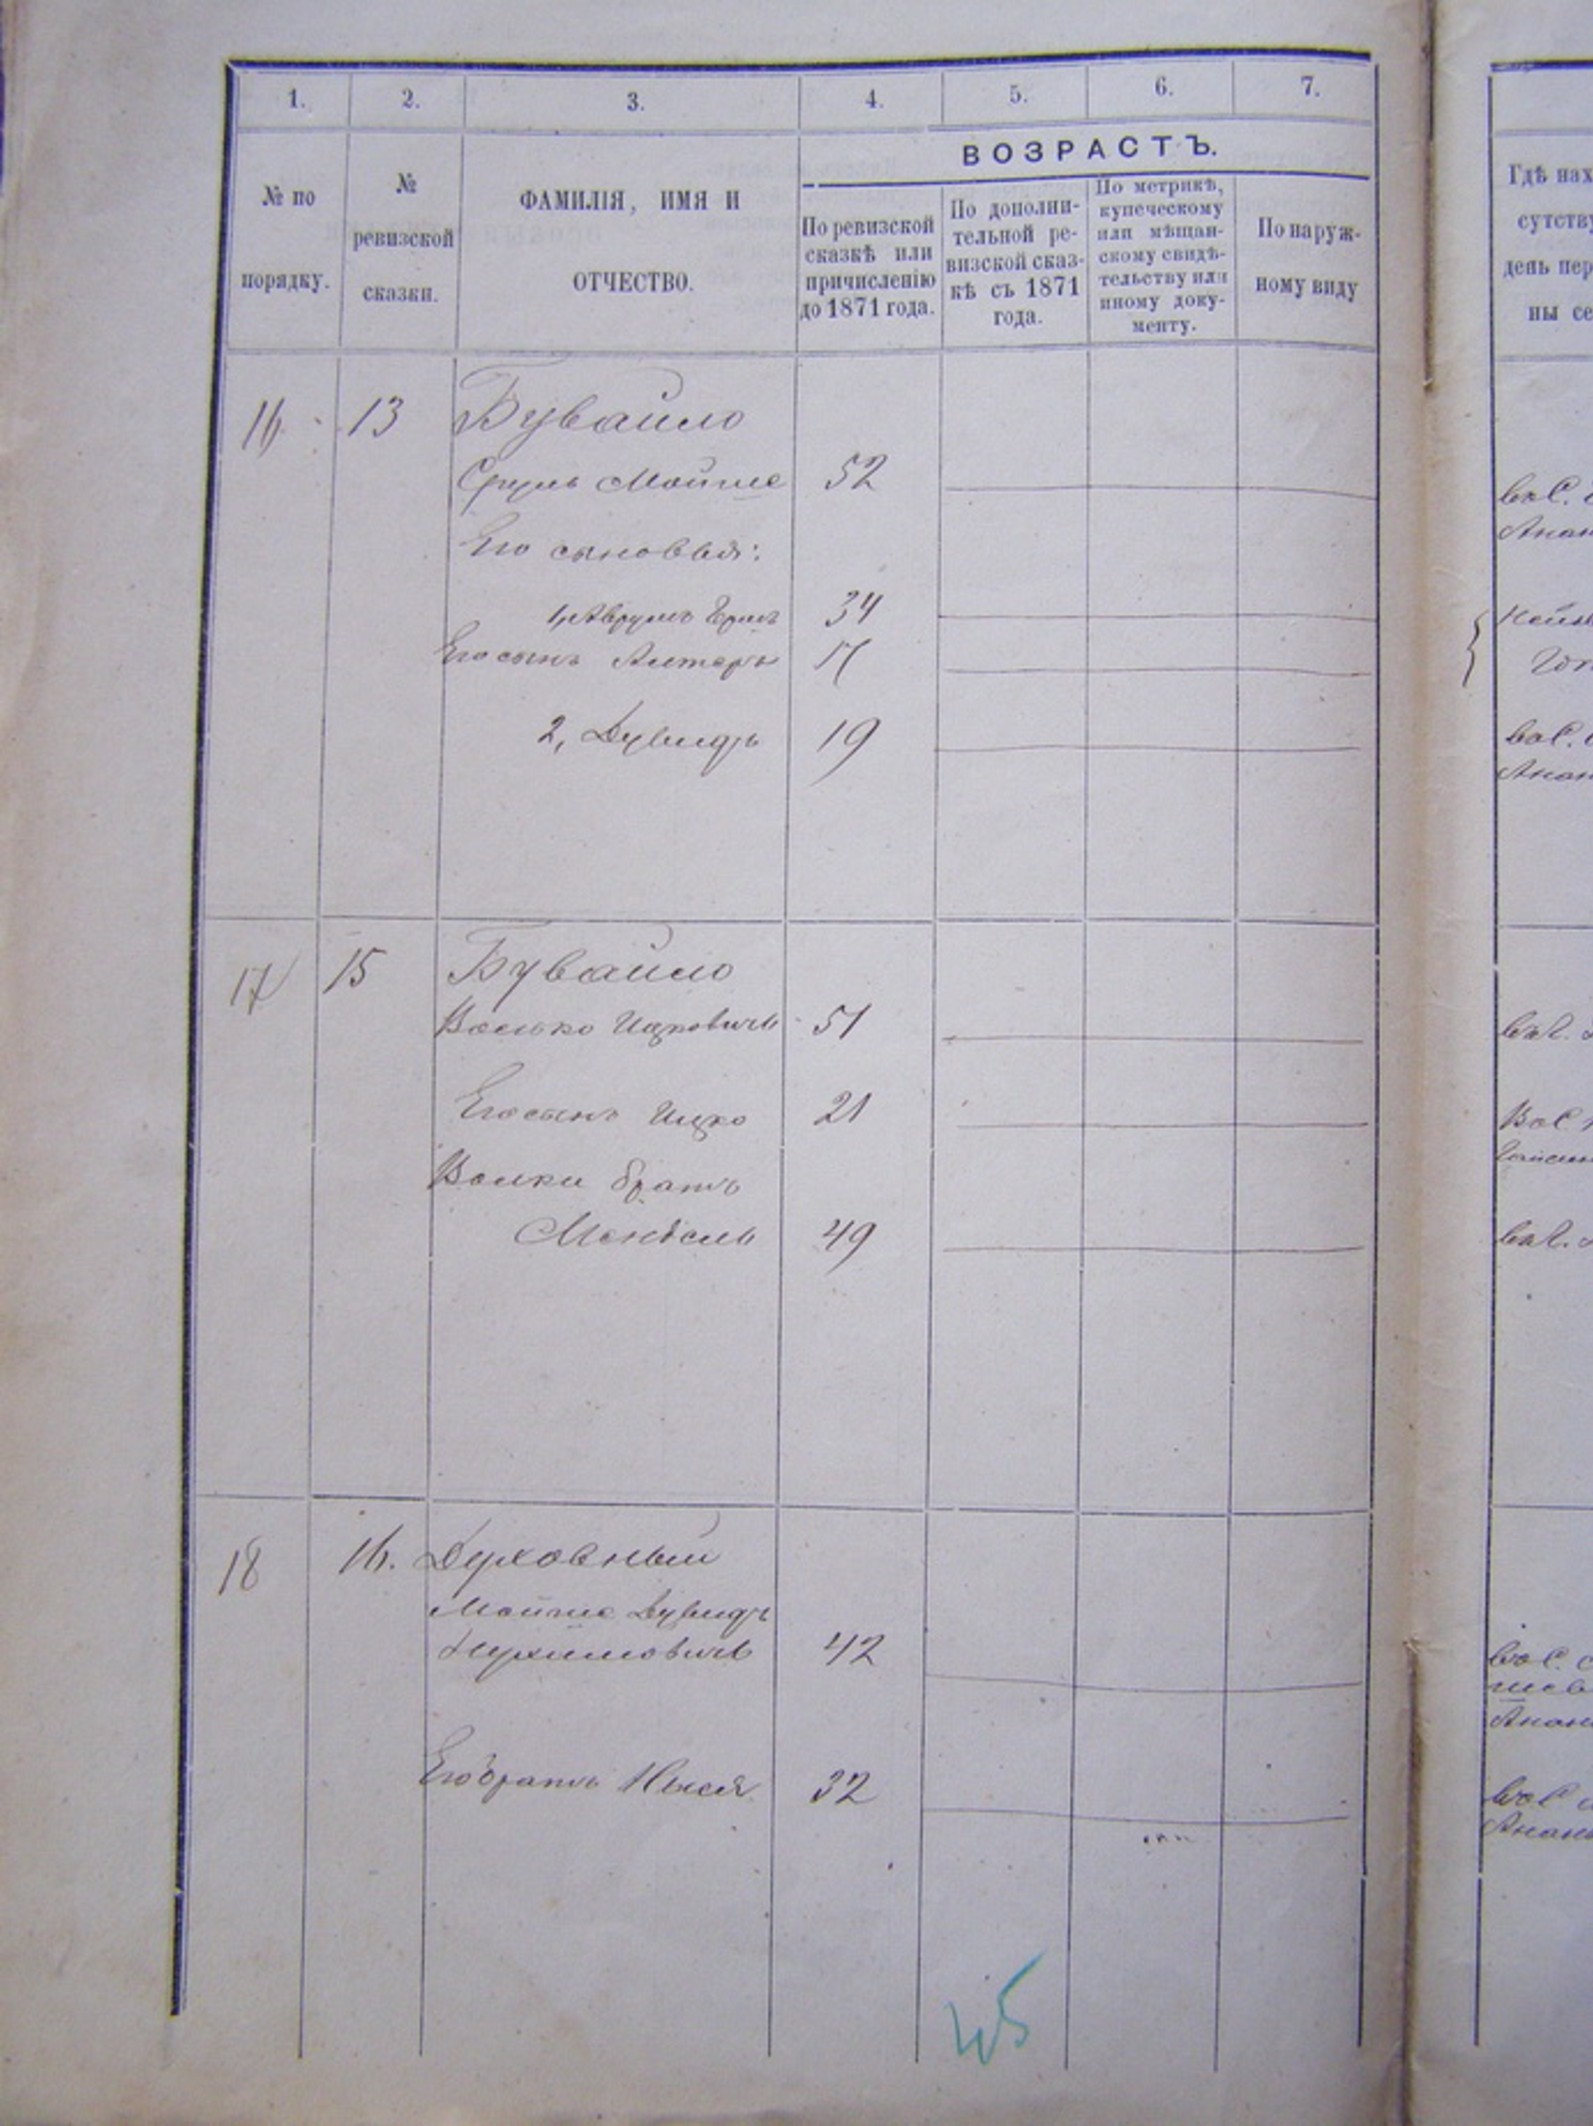 1. 2. 3. 4. 5. 6. 7.
№ по порядку.
№ ревизской сказки.
ФАМИЛІЯ, ИМЯ И
ОТЧЕСТВО.
ВОЗРАСТЪ.
По ревизской
сказкѣ или
причисленію
до 1871 года.
По дополни-
тельной ре-
визской сказ-
кѣ съ 1871
года.
По метрикѣ,
купеческому
или мѣщан-
скому свидѣ-
тельству или
иному доку-
менту.
По наруж-
ному виду
Гдѣ нах
сутству
день пер
ны се
16 13 Бувайло
Сруль Мойше 52
Его сыновья:
1, Аврумъ 34
Его сынъ Алтеръ
2, Дувидъ 19
17 15 Бувайло
Волько Ицковичъ 51
Его сынъ Ицко 21
Волки братъ
Мендель 49
18 16. Духовный
Мойше Дувидъ
Нухимовичъ 42
Его братъ 32
45